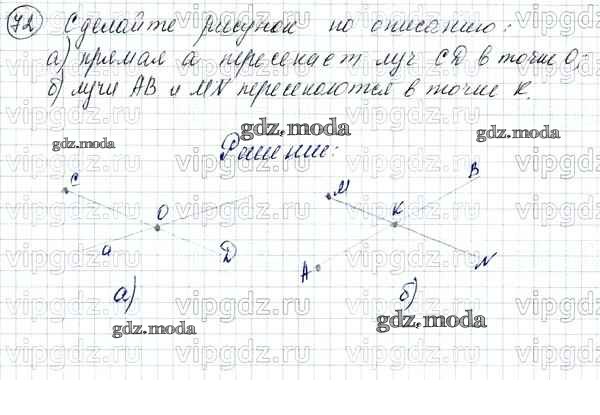 72 Сделайте рисунок по описанию:
а) прямая а пересекает луч CD в точке О;
б) лучи АВ и MN пересекаются в точке К.
gdz.moda
gdz.moda
gdz.moda
Решение:
C
O
a
D
M
K
B
A
N
а)
б)
gdz.moda
gdz.moda
vipgdz.ru